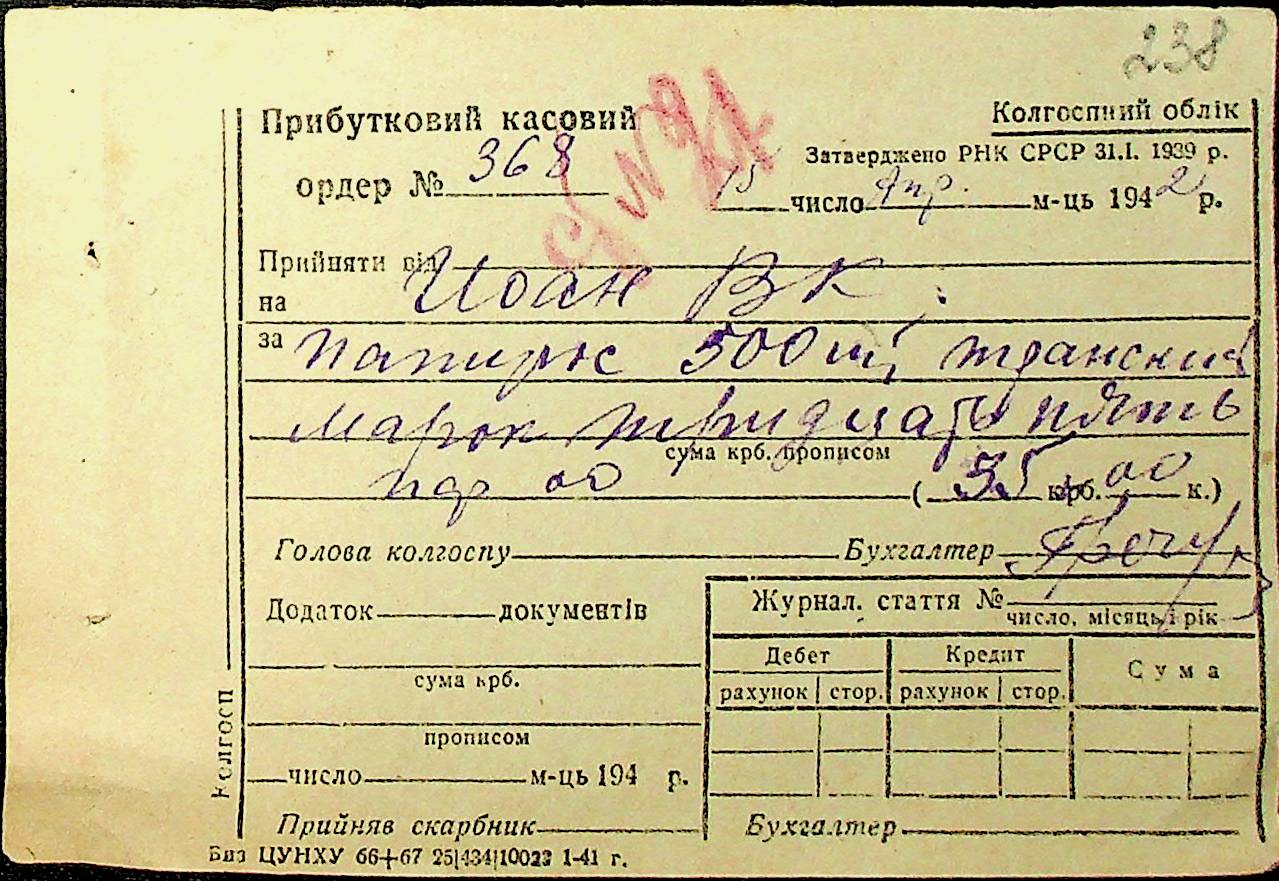 238
Прибутковий касовий
ордер № 368
Колгоспний облік
Затверджено РНК СРСР 31.I. 1939 р.
15 число Апр. м-ць 1942 р.
Прийняти від Иоан ВК
на
за папирос 500 шт
марок тридцать пять
сума крб. прописом
00 (35 крб. 00 к.)
Голова колгоспу Бухгалтер
Додаток документів
сума крб.
прописом
число м-ць 194 р.
Прийняв скарбник
Журнал. стаття №
число, місяць і рік
Дебет Кредит Сума
рахунок стор. рахунок стор.
Бухгалтер
Колгосп
Вид ЦУНХУ 66+67 25|434|10023 1-41 г.